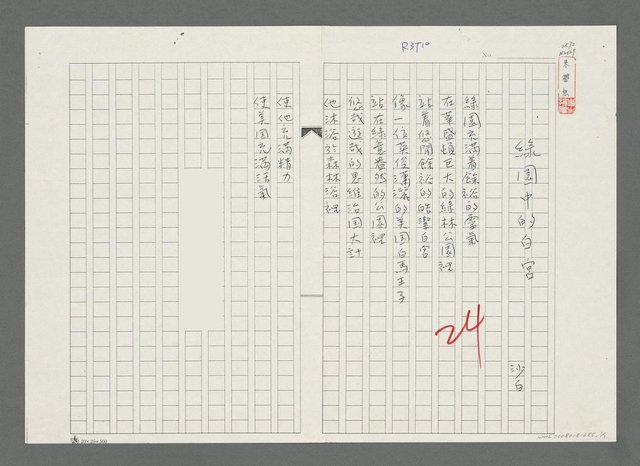 R3T10
No.
綠園中的白宮
沙白
綠園充滿着餘裕的靈氣
在華盛頓巨大的綠林公園裡
站着悠閒餘裕的皓潔白宮
像一位英俊瀟灑的美国白馬王子
站在綠意盎然的公園裡
悠哉遊哉的思維治国大計
他沐浴於森林浴裡
使他充滿精力
使美国充滿活氣
24